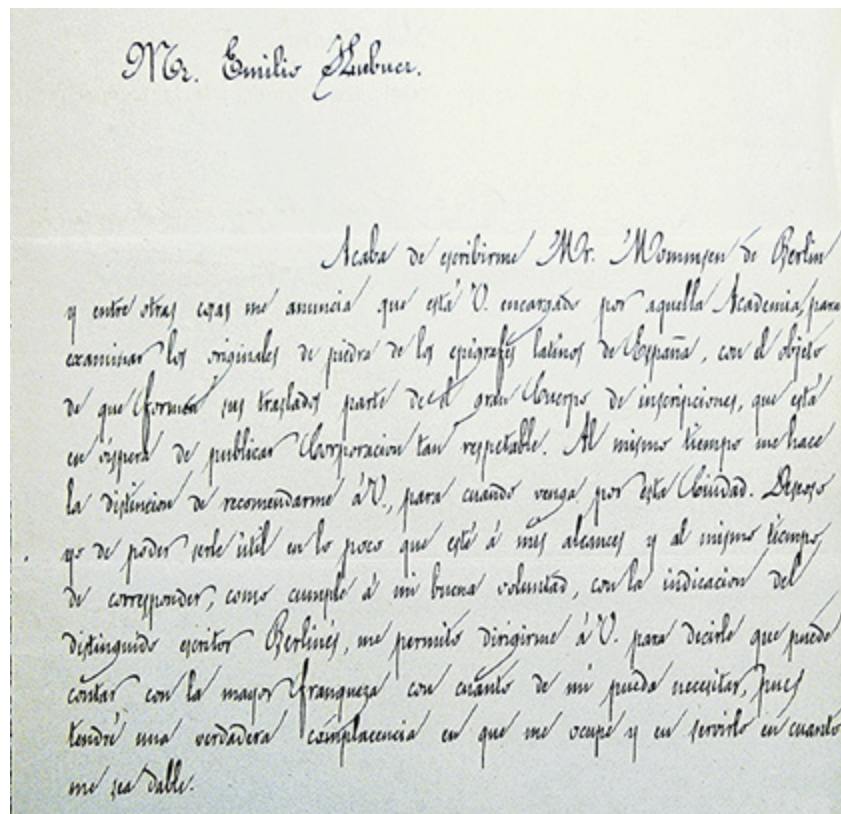 Mr. Emilio Hubner.
Acaba de escribirme Mr. Mommsen de Berlin
y entre otras cosas me anuncia que está V. encargado por aquella Academia, para
examinar los originales de piedra de los epigrafes latinos de España, con el objeto
de que formen sus traslados parte del gran Cuerpo de inscripciones, que está
en víspera de publicar Corporacion tan respetable. Al mismo tiempo me hace
la distincion de recomendarme á V., para cuando venga por esta Ciudad. Deseoso
yo de poder serle útil en lo poco que esté á mis alcances y al mismo tiempo
de corresponder, como cumple á mi buena voluntad, con la indicacion del
distinguido escritor Berlinés, me permito dirigirme á V. para decirle que puede
contar con la mayor franqueza con cuanto de mi pueda necesitar, pues
tendré una verdadera complacencia en que me ocupe y en servirle en cuanto
me sea dable.